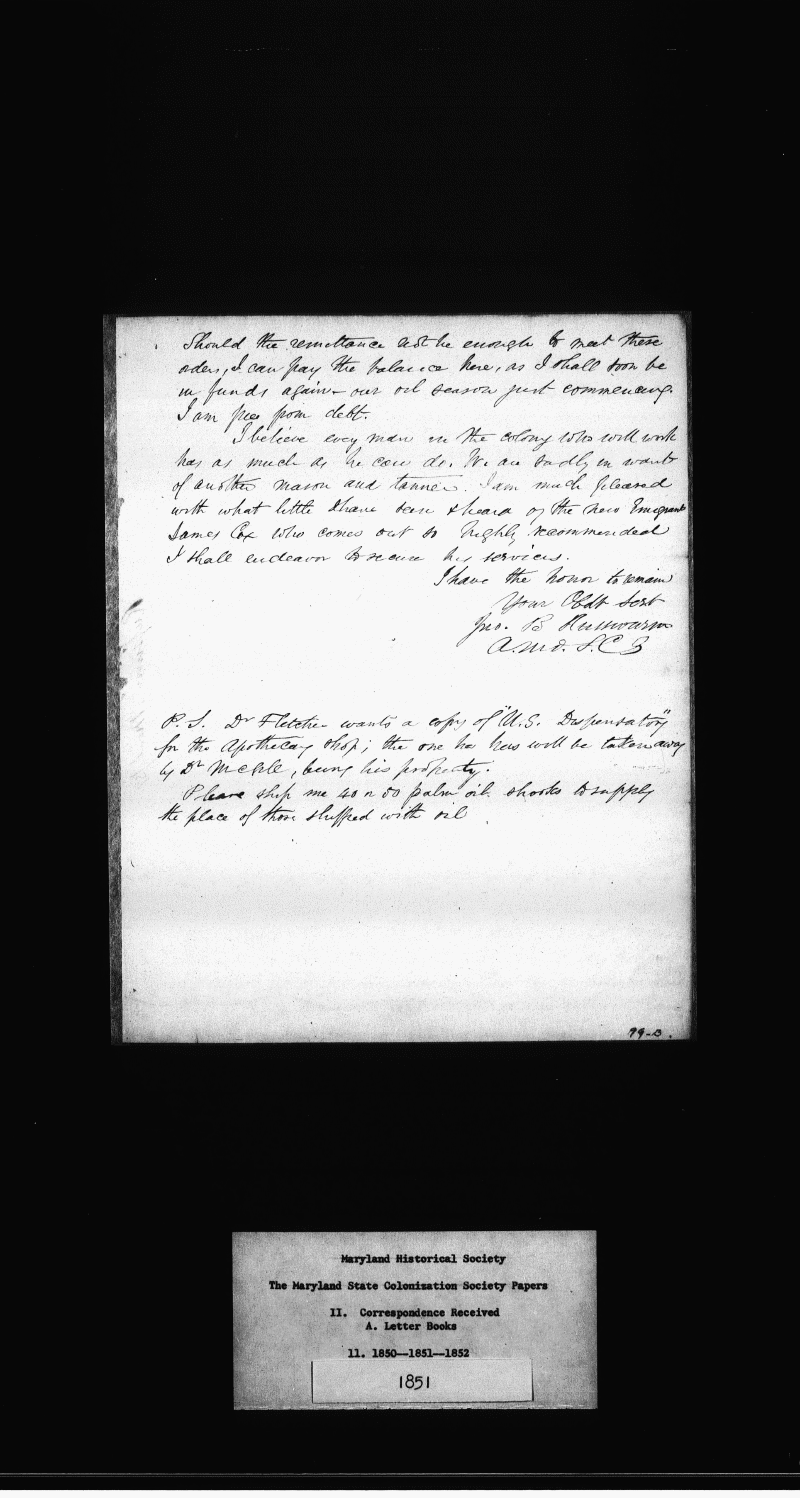 Should the remittance not be enough to meet these
orders, I can pay the balance here, as I shall soon be
in funds again – our oil season just commencing.
I am free from debt.
I believe every man in the colony who will work
has as much as he can do. We are sadly in want
of another mason and tanner. I am much pleased
with what little I have seen & heard of the new Emigrant
James Cox who comes out so highly recommended
I shall endeavor to secure his services.
I have the honor to remain
Your Obdt Sert
Jno. B Russwurm
A. Md. S. C S
P. S. Dr Fletcher wants a copy of "U.S. Dispensatory"
for the Apothecary shop; the one he has will be taken away
by Dr McGill, being his property.
Please ship me 40 or 50 palm oil shooks to supply
the place of those shipped with oil
99-B.
Maryland Historical Society
The Maryland State Colonization Society Papers
II. Correspondence Received
A. Letter Books
11. 1850--1851--1852
1851